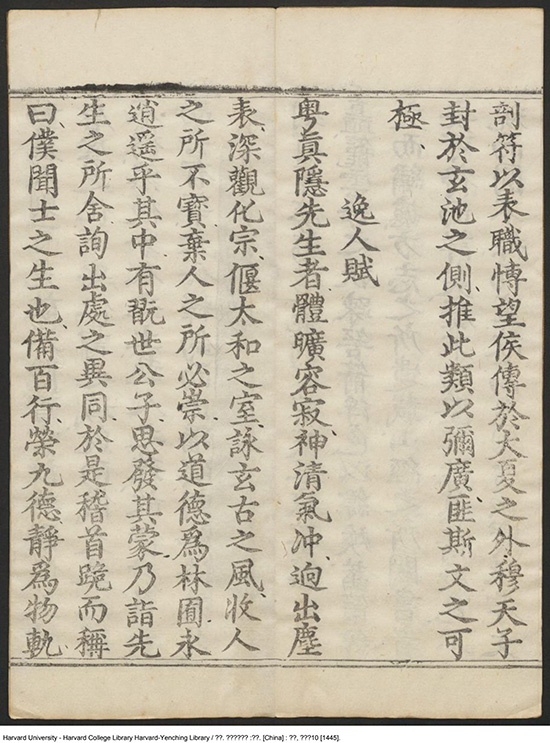 剖符以表職博望侯傳於大夏之外穆天子
封於玄池之側推此類以彌廣匪斯文之可
極
逸人賦
粤真隱先生者體曠容寂神清氣冲迥出塵
表深觀化宗偃太和之室詠玄古之風收人
之所不寶棄人之所必崇以道德為林囿永
逍遥乎其中有翫世公子思發其蒙乃詣先
生之所舍詢出處之異同於是稽首跪而稱
曰僕聞士之生也備百行榮九德靜為物軌
Harvard University - Harvard College Library Harvard-Yenching Library / ??. ?????? :??. [China] : ??, ???10 [1445].